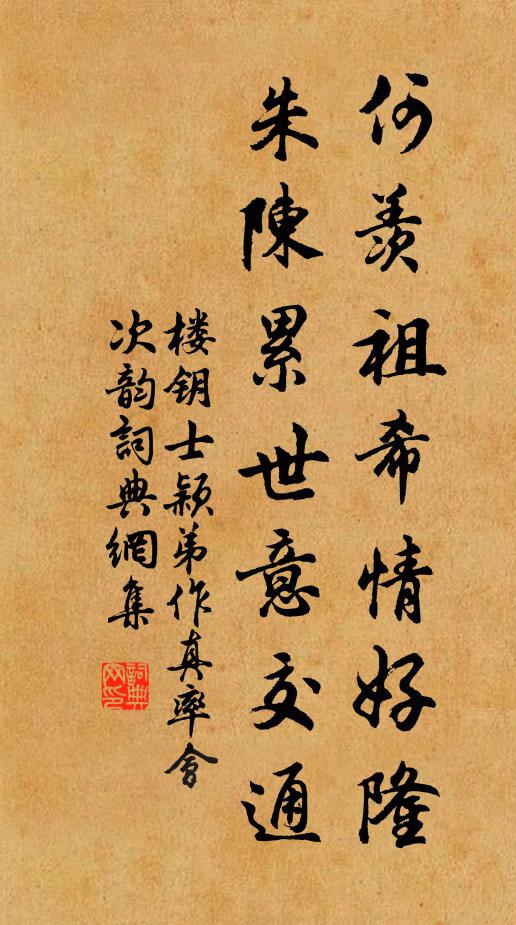 何羨祖希情好隆
朱陳累世意交通
楼钥士颖弟作真率會
次韵詞典網集
詞典网印